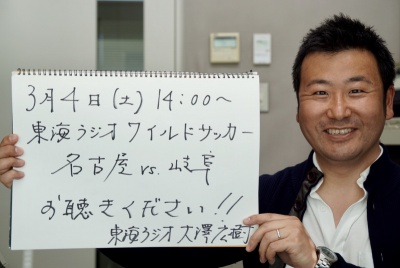 3月4日(土)14:00〜
東海ラジオ ワイルドサッカー
名古屋 vs. 岐阜
お聴きください!!
東海ラジオ 大澤広樹